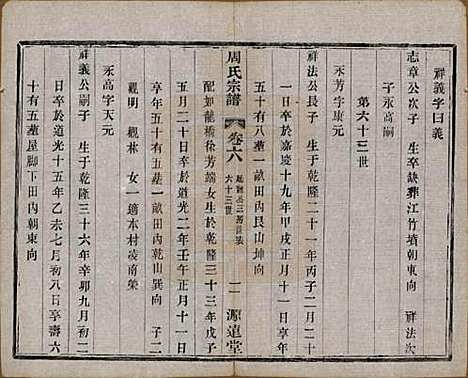 祥義字曰義
志章公次子 生卒缺葬江竹墳朝東向 祥法次
子永高嗣
第六十三世
永芳字康元
祥法公長子 生于乾隆二十一年丙子二月二十
一日卒於嘉慶十九年甲戌正月十一日享年
五十有八葬一畝田內艮山坤向
周氏宗譜 卷六 六十三世 二 源遠堂
配如龍橋徐芳端女生於乾隆三十三年戊子
五月二十日卒於道光十二年壬午正月十一日
享年五十有五葬一畝田內乾山巽向 子二
觀明 觀林 女一適本村凌南榮
永高字天元
祥義公嗣子 生于乾隆三十六年辛卯九月初二
日卒於道光十五年乙未七月初八日卒壽六
十有五葬屋脚下田內朝東向